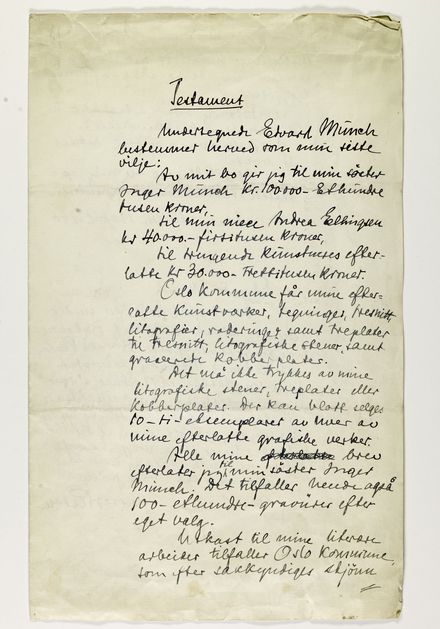 Testament
Undertegnede Edvard Munch
bestemmer herved som min siste
vilje:
Av mit bo gir jeg til min søster
Inger Munch kr. 100000 - Ethundre
tusen kroner,
til min niece Andrea Ellingsen
kr 40000.- firtitusen kroner,
til trengende kunstneres efter-
latte kr 30.000- Trettitusen kroner.
Oslo kommune får mine efter-
latte kunstverker, tegninger, tresnitt
litografier, raderinger samt treplater
til tresnitt, litografiske stener, samt
graverede kobberplater.
Det må ikke trykkes av mine
litografiske stener, treplater eller
kobberplater. Der kan blott selges
10 - ti - eksemplarer av hver av
mine efterlatte grafiske verker.
Alle mine brev
efterlater jeg til min søster Inger
Munch. Det tilfaller hende også
100 - ethundre - gravurer efter
eget valg.
Utkast til mine literære
arbeider tilfaller Oslo kommune,
som efter sakkyndiges skjønn